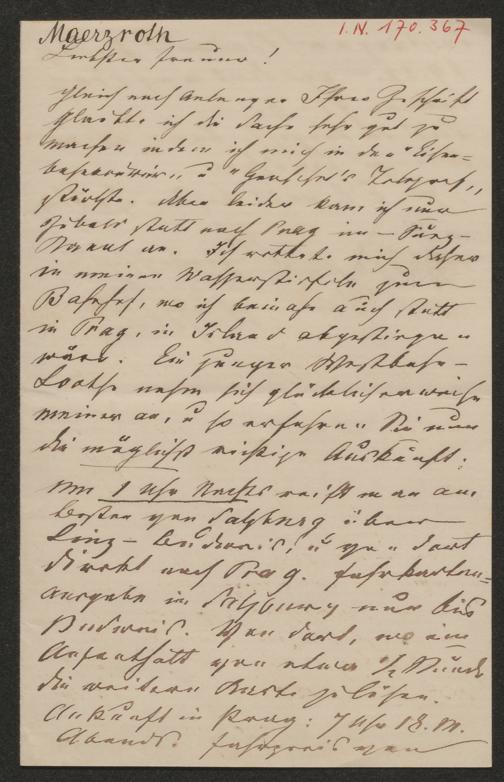 Maerzroth
I.N. 170.367
Liebster Freund!
Gleich nach Anlangen Ihres
glaubte ich die Sache sehr gut zu
machen indem ich mich in den "Eisen-
" u "Telegraf"
stürzte. Aber leider kam ich nur
statt nach Prag im – Suez-
Kanal an. Ich rettete mich daher
in meinen Wasserstiefeln zum
Bahnhof, wo ich beinahe auch statt
in Prag, in Island abgestiegen
wäre. Ein junger Westbahn-
Lootse nahm sich glücklicherweise
meiner an, u so erfahren Sie nun
die möglichst richtige Auskunft:
Um 1 Uhr Nachts reist man am
besten von Salzburg über
Linz – Budweis, u von dort
direkt nach Prag. Fahrkarten-
ausgabe in Salzburg nur bis
Budweis. Von dort, wo ein
Aufenthalt von etwa ½ Stunde
die weitere Karte zu lösen.
Ankunft in Prag: 7 Uhr 18 M.
Abends. Fahrpreis von